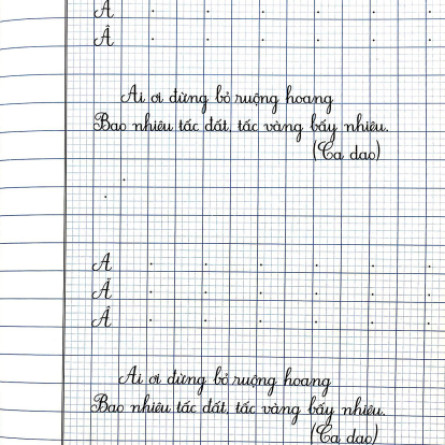 Ă
Â
Ai ơi đừng bỏ ruộng hoang
Bao nhiêu tấc đất, tấc vàng bấy nhiêu.
(Ca dao)
A
Ă
Â
Ai ơi đừng bỏ ruộng hoang
Bao nhiêu tấc đất, tấc vàng bấy nhiêu.
(Ca dao)